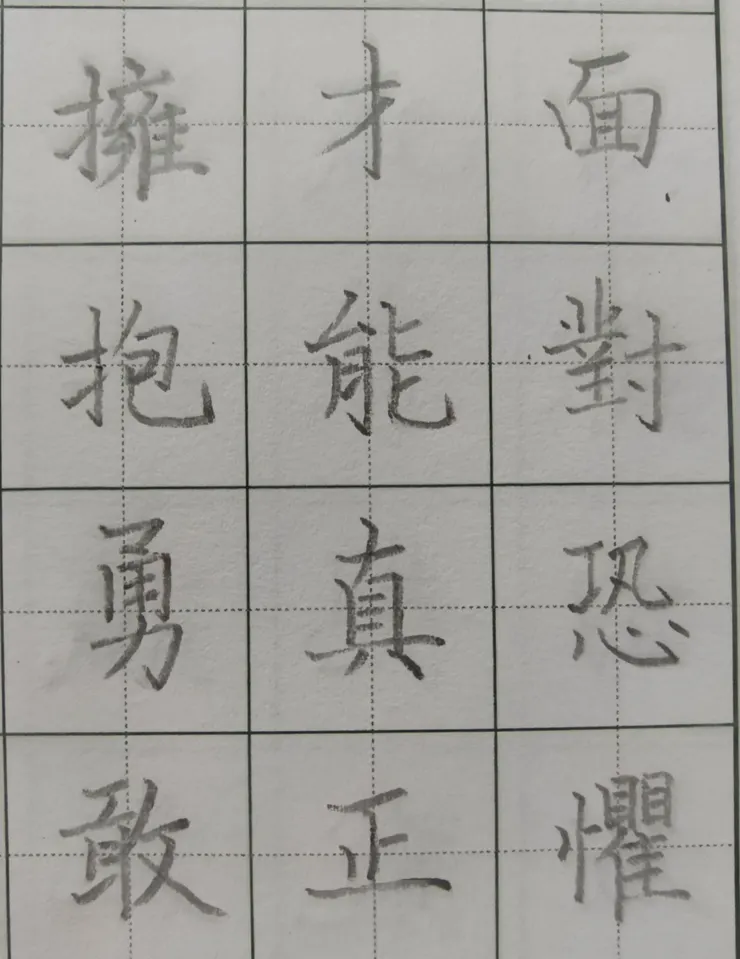 面對恐懼
才能真正
擁抱勇敢